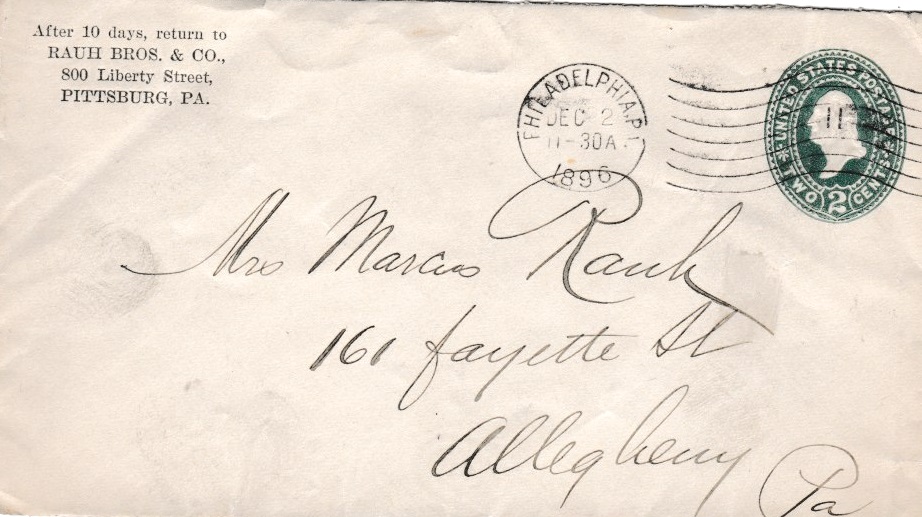 After 10 days, return to
RAUH BROS. & CO.,
800 Liberty Street,
PITTSBURG, PA.
PHILADELPHIA, PA
DEC 2
11-30A
1896
UNITED STATES POSTAGE
11
TWO 2 CENTS
Mrs Marcus Rauh
161 Fayette St
Allegheny
Pa